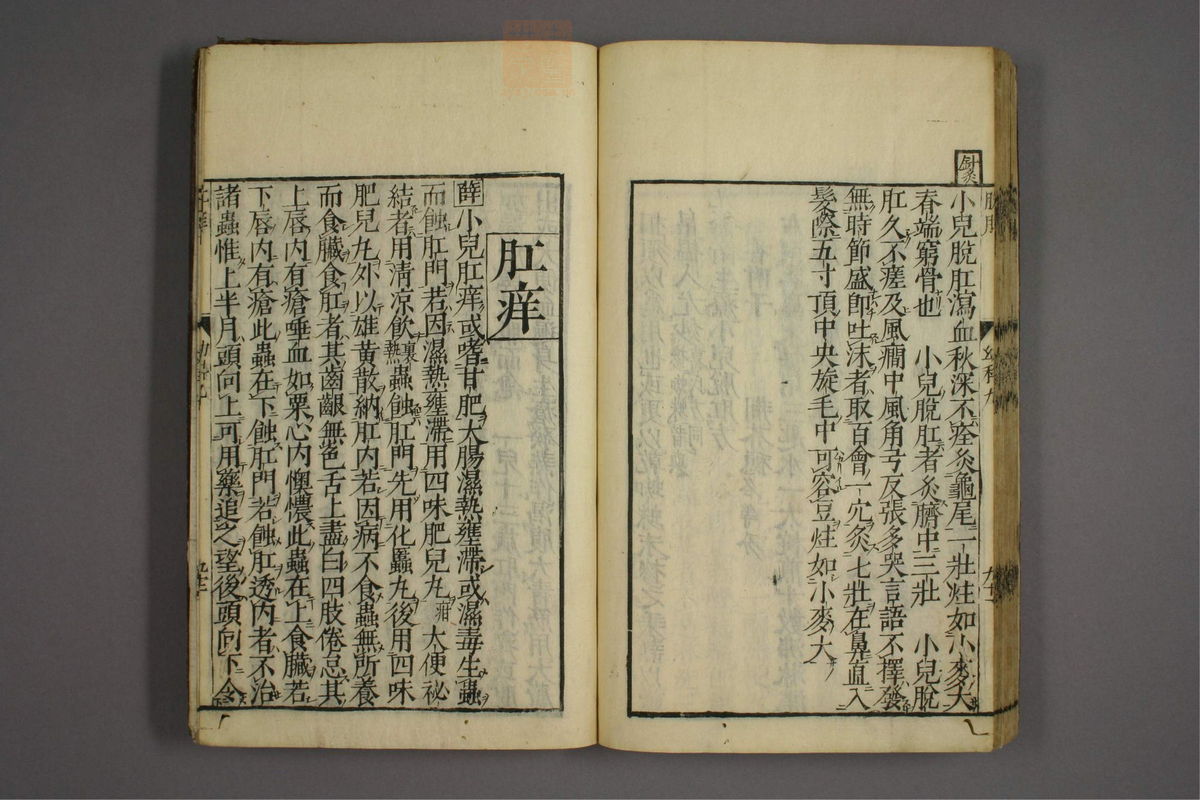 小兒脫肛瀉血秋深不痊灸龜尾一壯炷如小麥大
春端窮骨也　小兒脫肛者灸臍中三壯　小兒脫
肛久不瘥及風癇中風角弓反張多哭言語不擇發
無時節盛即吐沫者取百會一穴灸七壯在鼻直入
髮際五寸頂中央旋毛中可容豆炷如小麥大
肛痒
薛小兒肛痒或嗜甘肥大腸濕熱壅滯或濕毒生蟲
而蝕肛門若因濕熱壅滯用四味肥兒丸疳大便祕
結者用清凉飲裏熱蟲蝕肛門先用化䘌丸後用四味
肥兒丸外以雄黃散納肛內若因病不食蟲無所養
而食臟食肛者其齒齦無色舌上盡白四肢倦怠其
上唇內有瘡唾血如粟心內懊憹此蟲在上食臟若
下唇內有瘡此蟲在下蝕肛門若蝕肛透內者不治
諸蟲惟上半月頭向上可用藥追之望後頭向下令